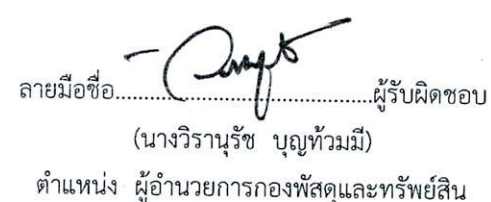 ลายมือชื่อ................................ผู้รับผิดชอบ
(นางวิรานุรัช บุญท้วมมี)
ตำแหน่ง ผู้อำนวยการกองพัสดุและทรัพย์สิน